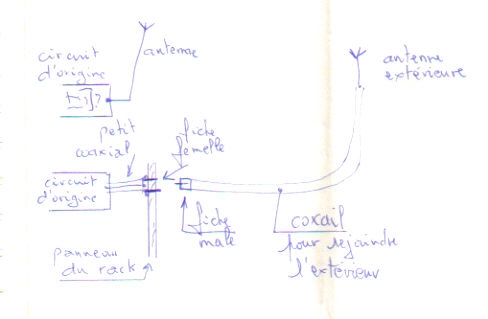 circuit
d'origine
antenne
antenne
extérieure
petit
coaxial
fiche
femelle
circuit
d'origine
fiche
male
coxail
pour rejoindre
l'extérieur
panneau
du rack